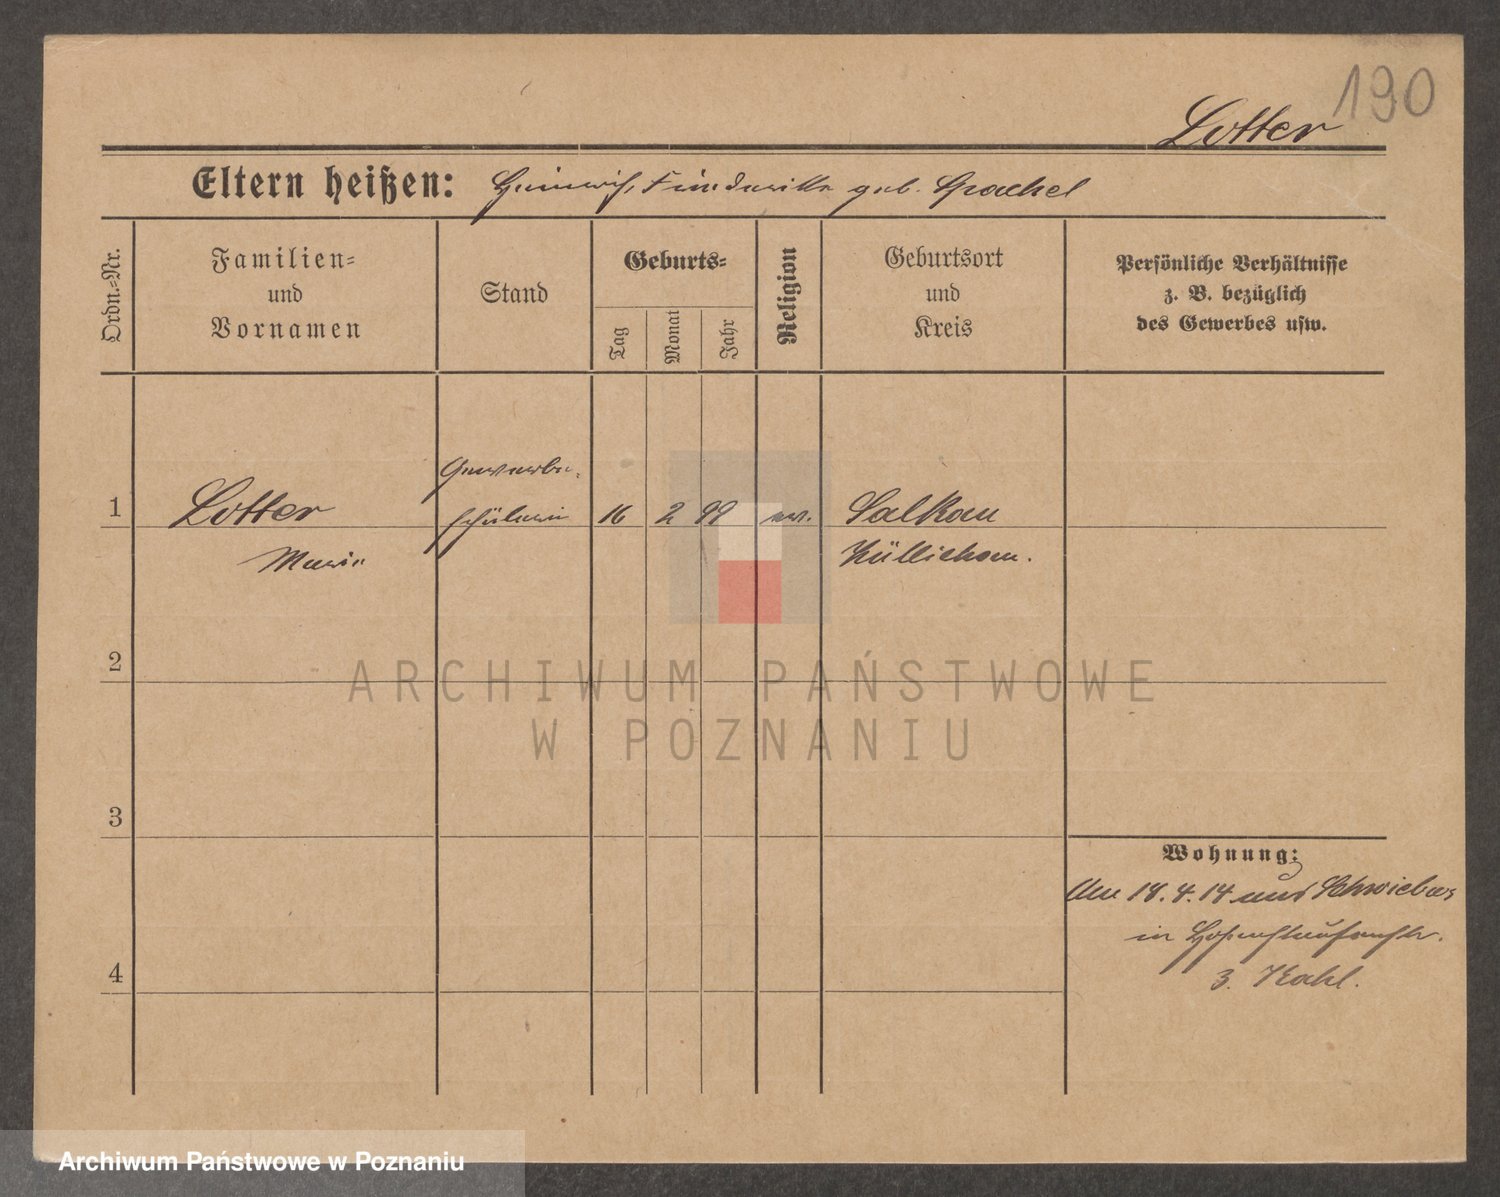 190
Lotter
Eltern heißen: Heinrich, Friederike geb. Grachel
Ordn.-Nr.
Familien-
und
Vornamen
Stand
Geburts-
Tag
Monat
Jahr
Religion
Geburtsort
und
Kreis
Persönliche Verhältnisse
z. B. bezüglich
des Gewerbes usw.
Gewerbe-
1 Lotter schülerin 16 2 99 ev. Salkau
Marie Züllichau.
2
ARCHIWUM PAŃSTWOWE
W POZNANIU
3
Wohnung:
Am 18.4.14 aus Schwiebus
in Hohenstaufenstr.
4
3. Kahl.
Archiwum Państwowe w Poznaniu